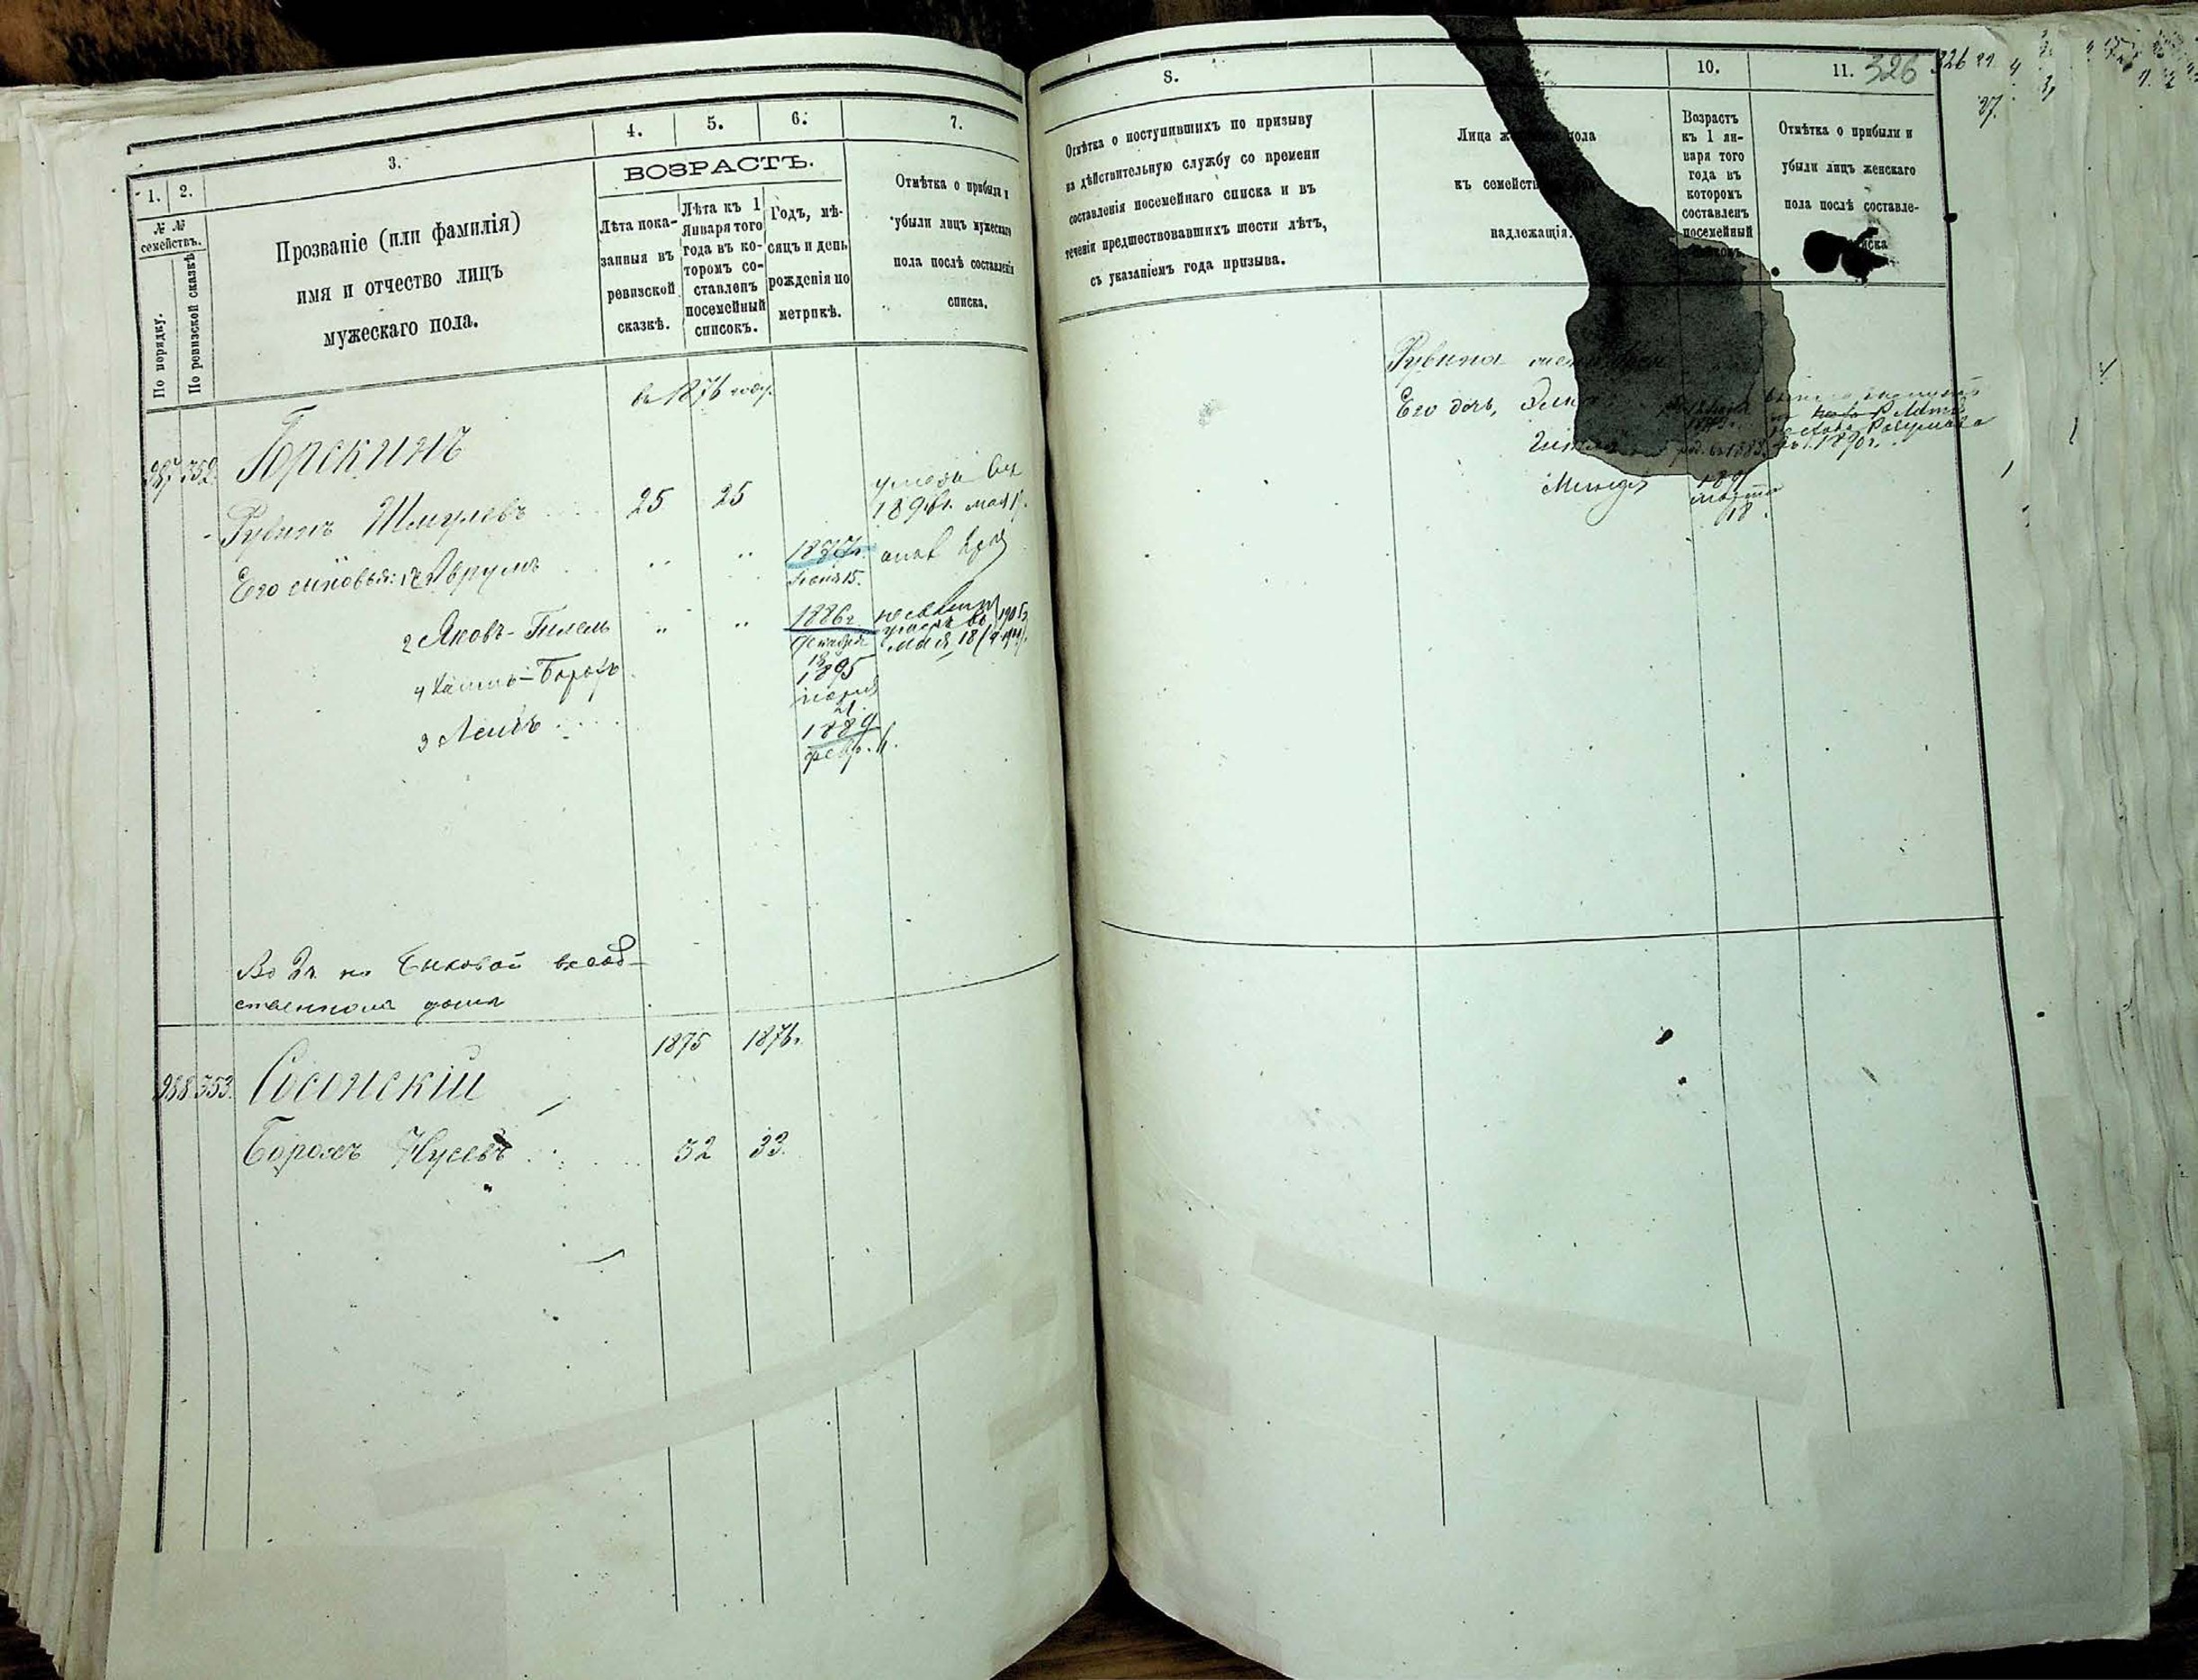 1.
2.
3.
4.
5.
6.
7.
№ №
семействъ.
По порядку.
По ревизской сказкѣ
Прозваніе (или фамилія)
имя и отчество лицъ
мужескаго пола.
ВОЗРАСТЪ.
Лѣта пока-
занныя въ
ревизской
сказкѣ.
Лѣта къ 1
Января того
года въ ко-
торомъ со-
ставленъ
посемейный
списокъ.
Годъ, мѣ-
сяцъ и день
рожденія по
метрикѣ.
Отмѣтка о прибыли и
убыли лицъ мужескаго
пола послѣ составленія
списка.
въ 1876 году.
987
352
Брскинъ
Рувинъ Шмулевъ
25
25
1896г. мая
Его сыновья: 1 Аврумъ
15.
2 Яковъ-Гилель
1886г.
18
мая 18
4 Хаимъ-Борохъ
1895
21
3 Лейбъ
1889
февр.
Во 2ч. по Быховой въ соб-
ственномъ домѣ
988
353.
1875
1876г.
Сосонскій
Борохъ Нусевъ
32
33.
8.
10.
11.
326
326
27.
Отмѣтка о поступившихъ по призыву
на дѣйствительную службу со времени
составленія посемейнаго списка и въ
теченіи предшествовавшихъ шести лѣтъ,
съ указаніемъ года призыва.
Лица ж пола
къ семейств
надлежащія.
Возрастъ
къ 1 ян-
варя того
года въ
которомъ
составленъ
посемейный
Отмѣтка о прибыли и
убыли лицъ женскаго
пола послѣ составле-
иска
Рувина
Его дочь,
1890г.
1891
марта
18